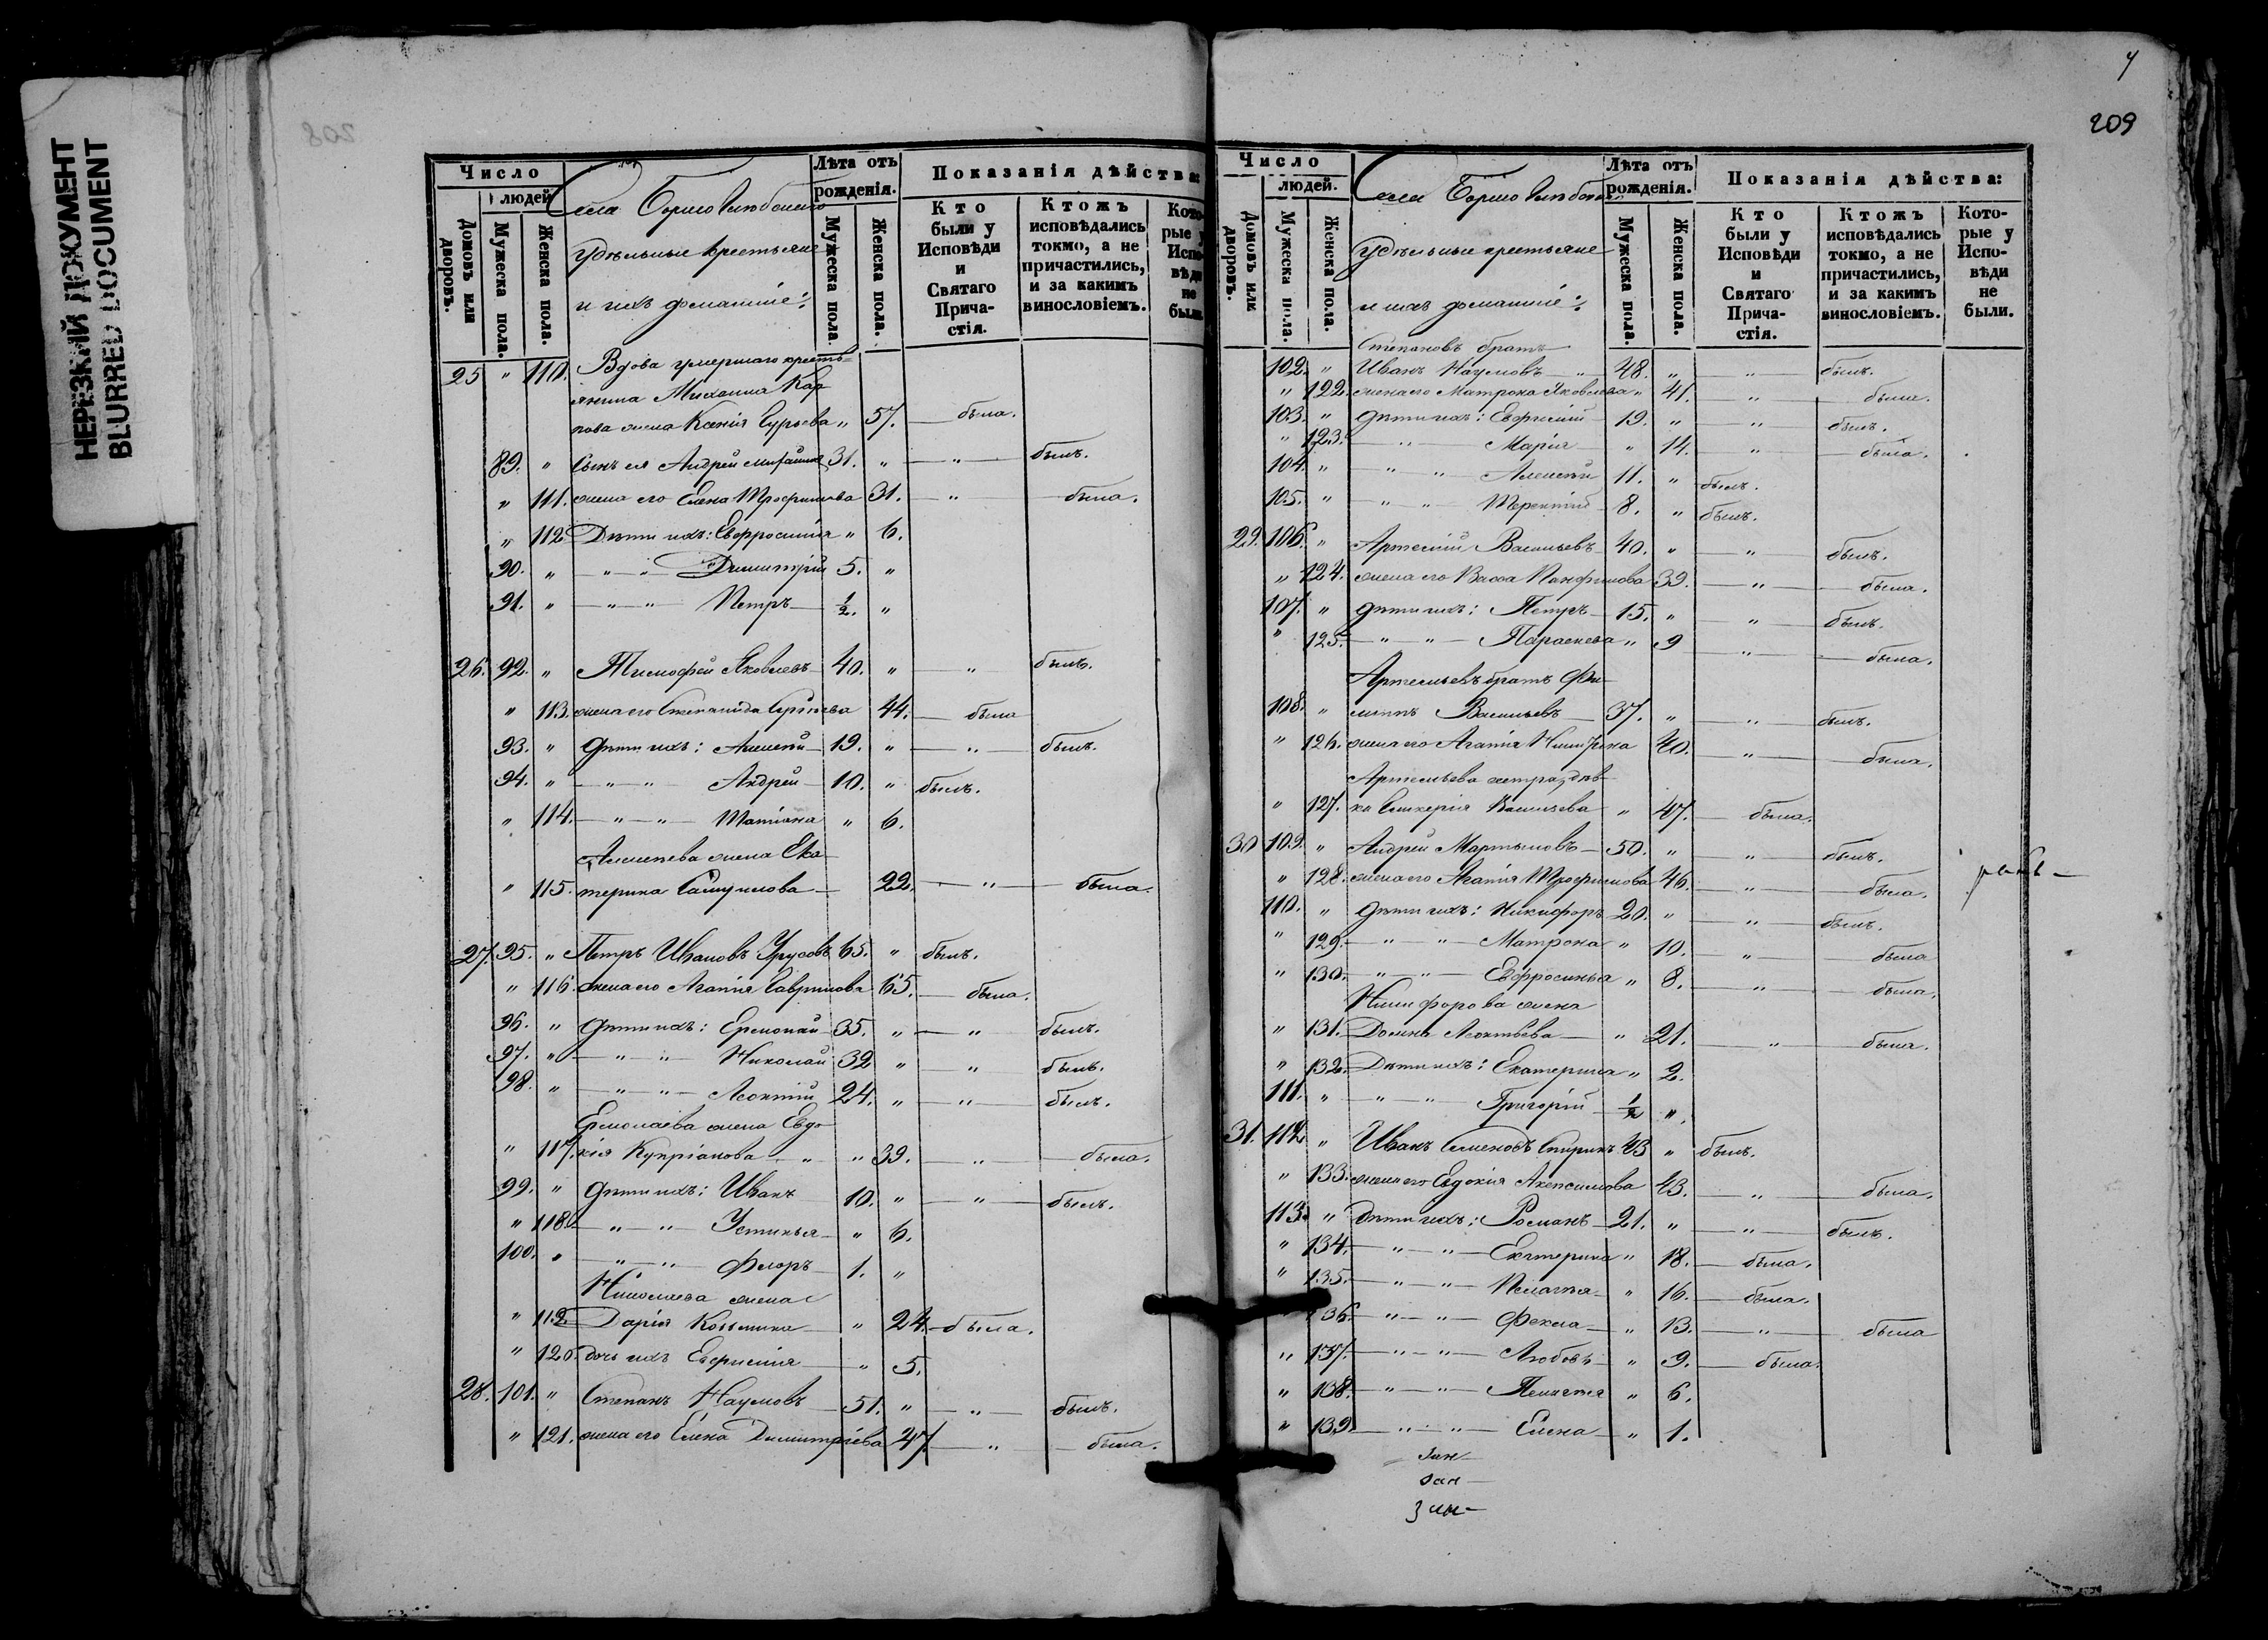 НЕРЕЗКИЙ ДОКУМЕНТ
BLURRED DOCUMENT
208
Число
людей
Домовъ или дворовъ.
Мужеска пола.
Женска пола.
Села
удѣльные крестьяне
и ихъ домашніе:
Лѣта отъ рожденія.
Мужеска пола.
Женска пола.
Показанія дѣйства:
Кто были у Исповѣди и Святаго Причастія.
Ктожъ исповѣдались токмо, а не причастились, и за какимъ винословіемъ.
Которые у Исповѣди не были.
25 " 110. Вдова умершаго кресть-
янина Михаила Кар
пова жена Ксенія Гурьева " 57. была.
89. " Сынъ ея Андрей Михайловъ 31. " " былъ.
" 111. жена его Елена Трофимова 31. " была.
" 112 Дѣти ихъ: Евфросинія " 6.
90. " " " Димитрій 5. "
91. " " " Петръ 1/2. "
26. 92. " Тимофей Яковлевъ 40. " " былъ.
" 113. жена его Степанида Сергѣева 44. была
93. " дѣти ихъ: Алексѣй 19. " " былъ.
94. " " " Андрей 10. " былъ.
" 114. " " Татіана " 6.
Алексѣева жена Ека
" 115. терина Самуилова 22. " была.
27. 95. " Петръ Ивановъ Урусовъ 65. " былъ.
" 116. жена его Агапія Гаврилова 65. была.
96. " дѣти ихъ: Ермолай 35. " " былъ.
97. " " " Николай 32 " " былъ.
98. " " " Леонтій 24. " " былъ.
Ермолаева жена Евдо
" 117. кія Купріанова " " 39. " была.
99. " дѣти ихъ: Иванъ 10. " " былъ.
" 118. " " Устинья " 6.
100. " " " Флоръ 1. "
Николаева жена
" 119. Дарія Козьмина " 24. была.
" 120. дочь ихъ Евфимія " 5.
28. 101. " Степанъ Наумовъ 51. " " былъ.
" 121. жена его Елена Димитріева 47. " была.
209
Число
людей.
Домовъ или дворовъ.
Мужеска пола.
Женска пола.
Села
удѣльные крестьяне
и ихъ домашніе:
Лѣта отъ рожденія.
Мужеска пола.
Женска пола.
Показанія дѣйства:
Кто были у Исповѣди и Святаго Причастія.
Ктожъ исповѣдались токмо, а не причастились, и за какимъ винословіемъ.
Которые у Исповѣди не были.
Степановъ братъ
102. " Иванъ Наумовъ " 48. " " былъ.
" 122. жена его Матрона Яковлева " 41. " была.
103. " дѣти ихъ: Евфимій 19. " " былъ.
" 123. " Марія " 14. " была.
104. " " " Алексѣй 11. " былъ.
105. " " " Терентій 8. " былъ.
29. 106. " Артемій Васильевъ 40. " " былъ.
" 124. жена его Васса Панфилова 39. " была.
107. " дѣти ихъ: Петръ 15. " " былъ.
" 125. " " Параскева " 9 " была.
Артемьевъ братъ Фи-
108. " липпъ Васильевъ 37. " " былъ.
" 126. жена его Агапія 40. " была.
Артемьева сестра, дѣв-
" 127. ка Гликерія Васильева " 47. была.
30 109. " Андрей Мартыновъ 50. " " былъ.
" 128. жена его Агапія Трофимова 46. " была.
110. " дѣти ихъ: Никифоръ 20. " " былъ.
" 129. " " Матрона " 10. " была
" 130. " " Евфросинья " 8. " была.
Никифорова жена
" 131. Домна Леонтьева " 21. " была.
" 132. Дѣти ихъ: Екатерина " 2.
111. " " " Григорій 1/2 ".
31. 112 " Иванъ Семеновъ 43 " былъ.
" 133. жена его Евдокія 43. " была.
113. " дѣти ихъ: Романъ 21. " " былъ.
" 134. " " Екатерина " 18. была.
" 135. " " Пелагея " 16. была.
136. " " Фекла " 13. " была
" 137. " " Любовь " 9. была.
" 138. " " Пелагея " 6.
" 139. " " Елена " 1.